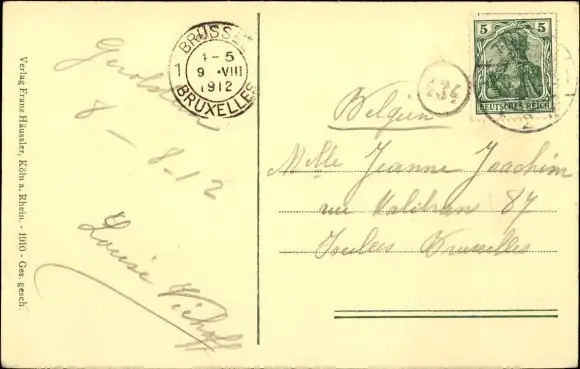 Verlag Franz Häussler, Köln a. Rhein. - 1910 - Ges. gesch.
8 - 8.12
Louise Viehoff
BRUSSEL
1-5
1 9 VIII
1912
BRUXELLES
134
5 5
DEUTSCHES REICH
Belgien
Melle Jeanne Joachim
rue Malibran 87
Ixelles Bruxelles